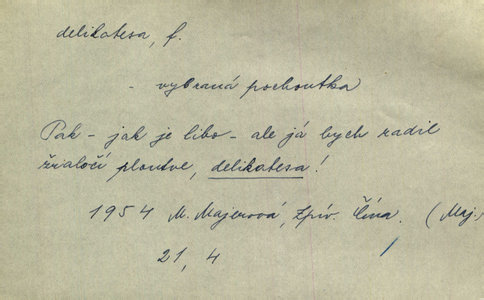 delikatesa, f.
- vybraná pochoutka
Pak - jak je libo - ale já bych radil
žraločí ploutve, delikatesa!
1954 M. Majerová, Zpív. Čína. (Maj.
21, 4